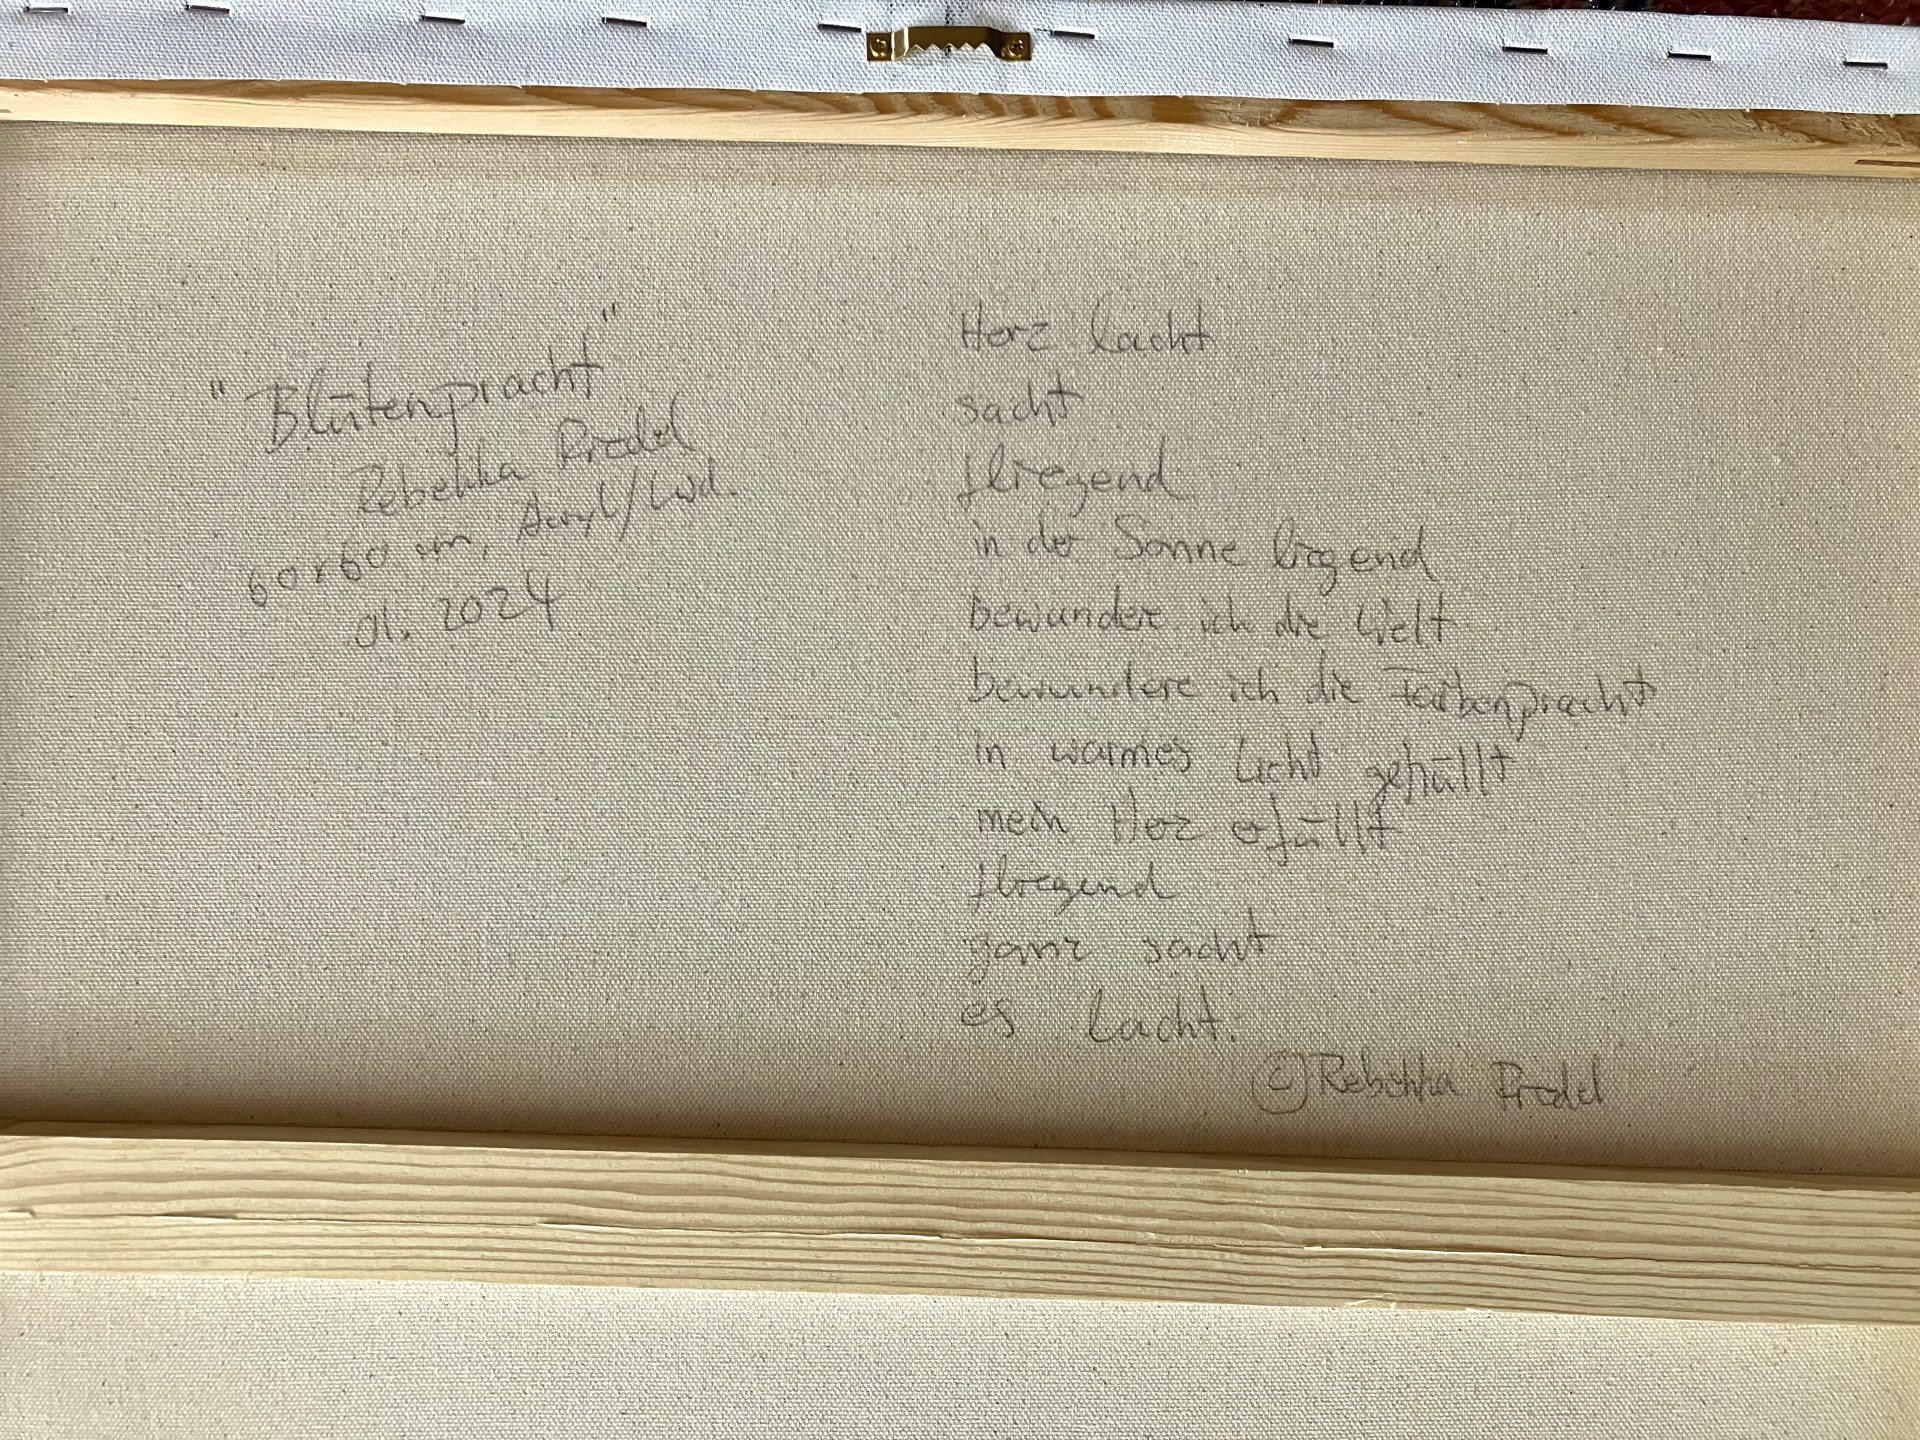 "Blütenpracht"
Rebekka Riedel
60 x 60 cm, Acryl/Lwd.
01. 2024
Herz lacht
sacht
fliegend
in der Sonne liegend
bewundere ich die Welt
bewundere ich die Farbenpracht
in warmes Licht gehüllt
mein Herz erfüllt
fliegend
ganz sacht
es lacht.
© Rebekka Riedel